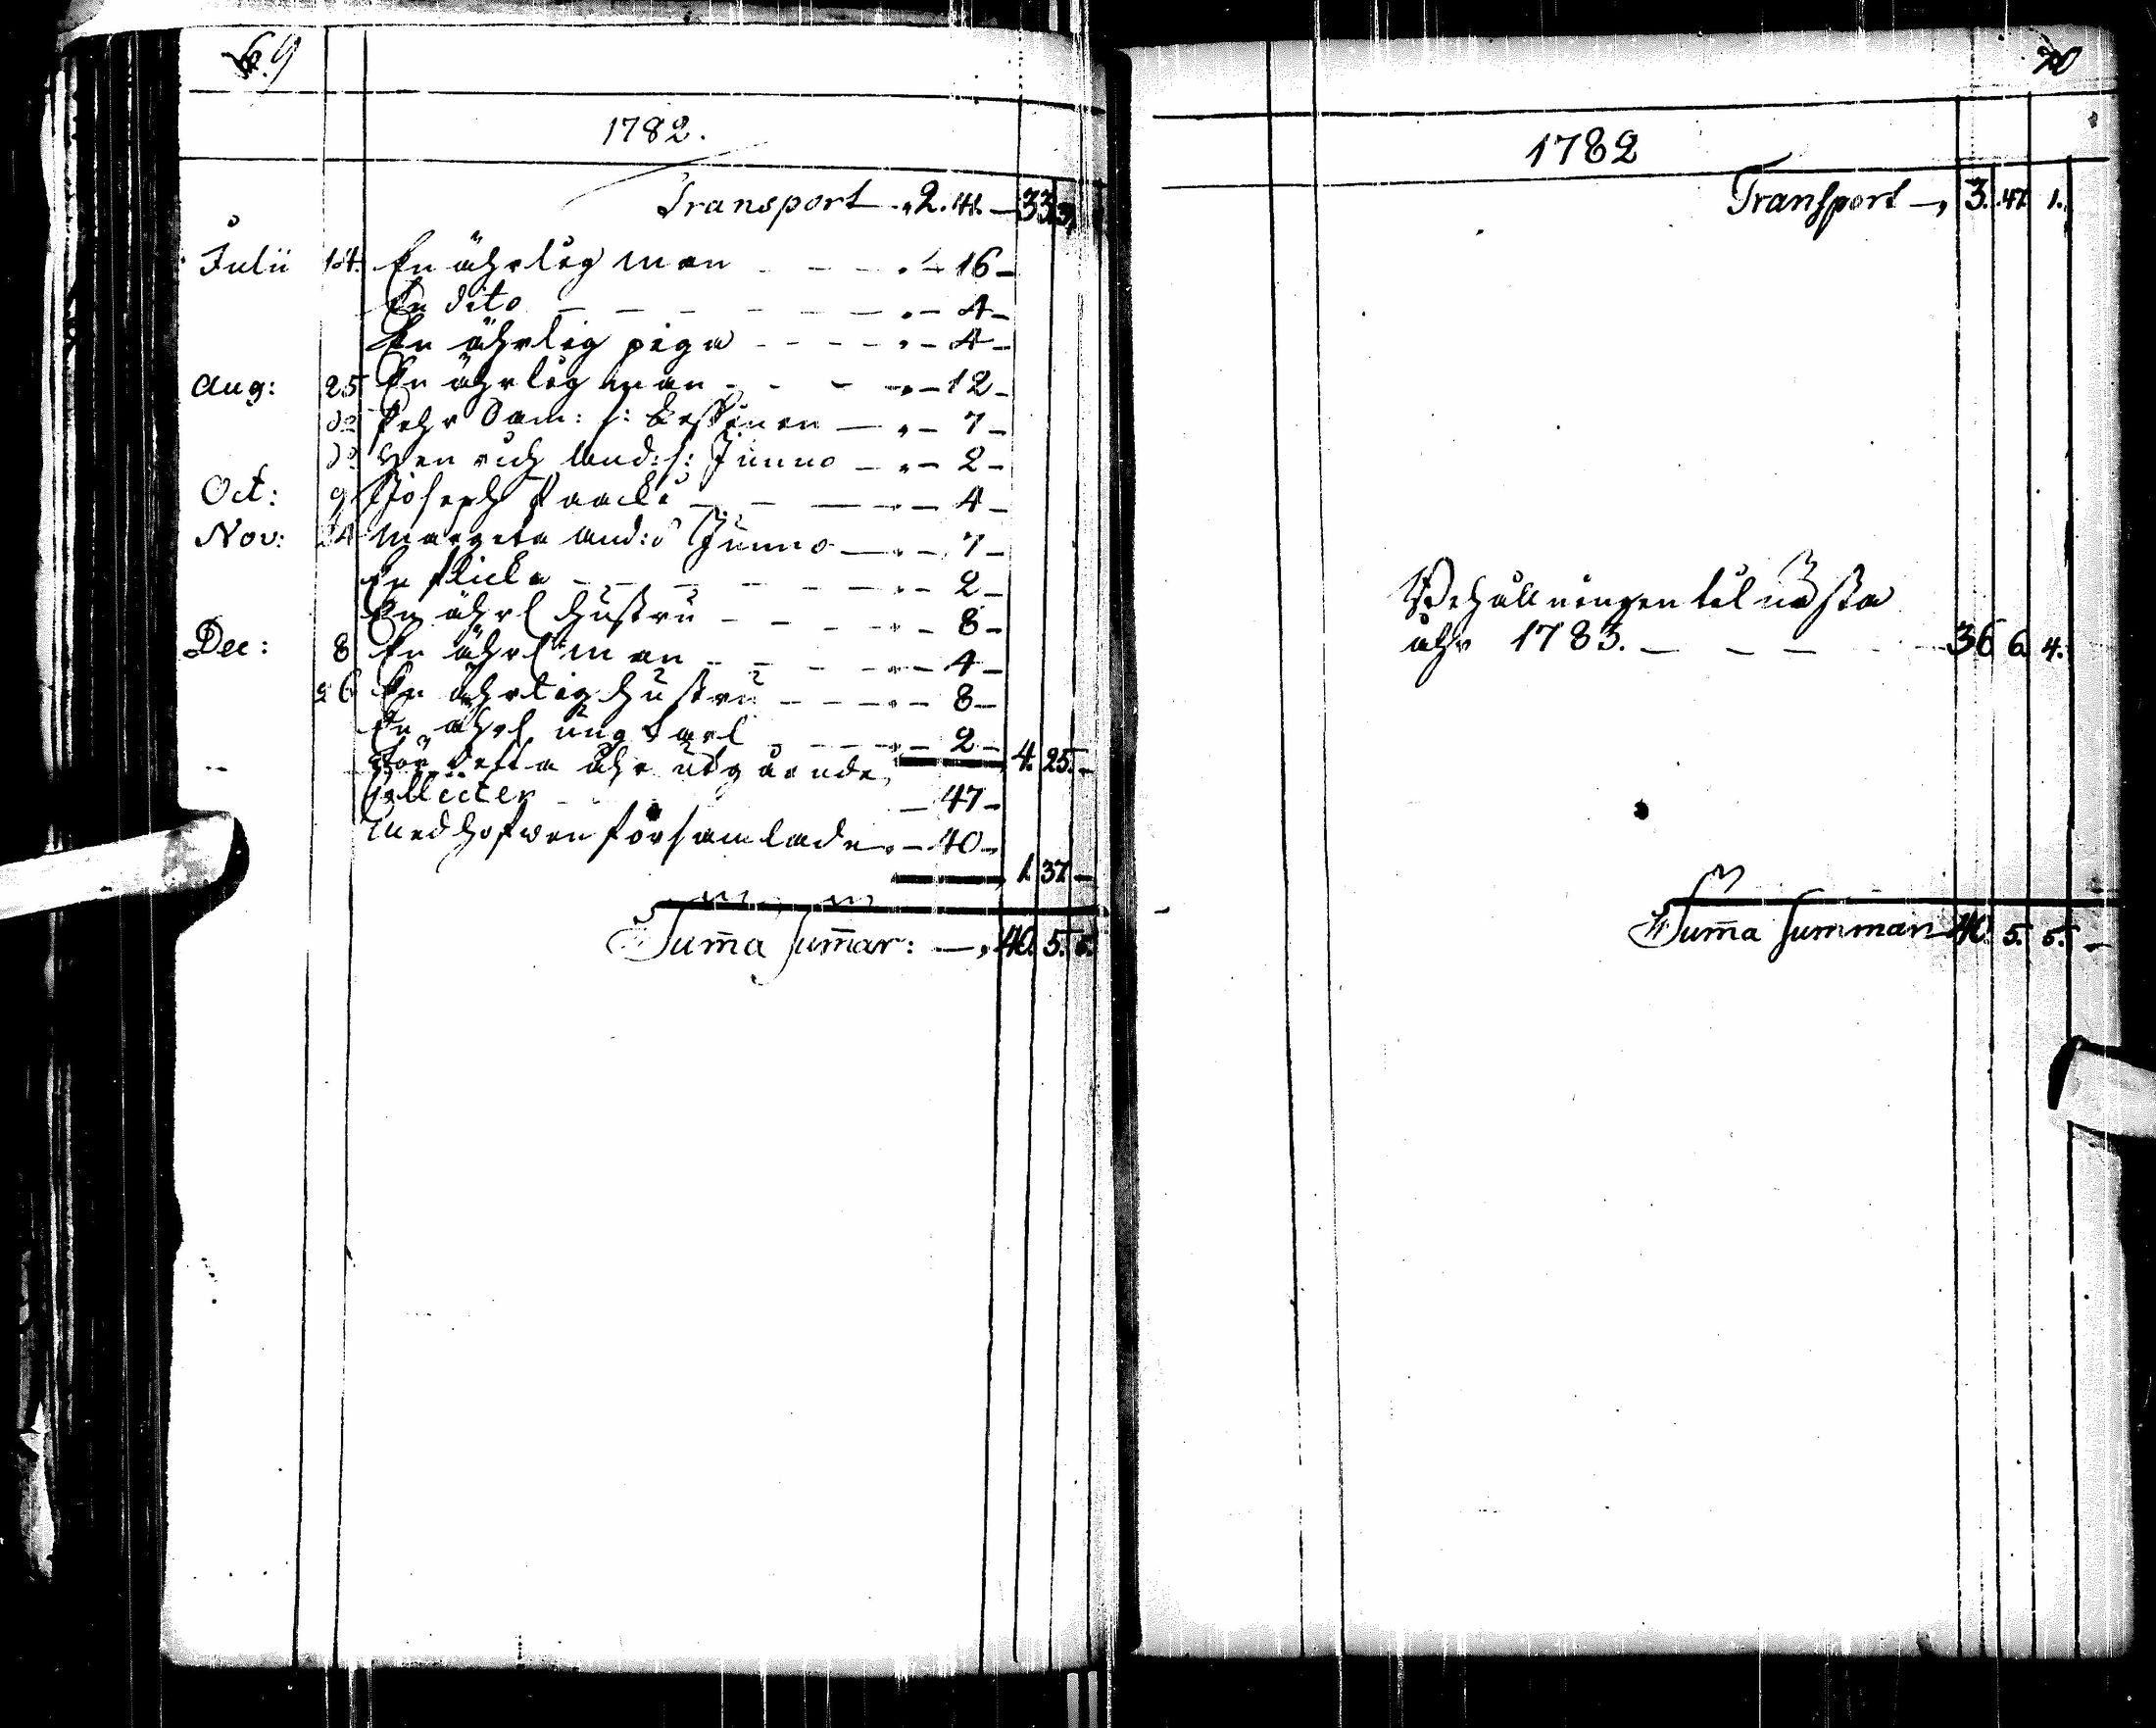 69
1782.
Transport - 2. 41. - 33 3
Julii 14. En ährlig man - - - 16 -
En dito - - - - - - 4 -
En ährlig piga - - - - 4 -
Aug: 25 En ährlig man - - - 12 -
do Pehr Sam: s: - 7 -
do Henrich And: s: Junno - - 2 -
Oct: 9 Joseph Paacki - - - 4 -
Nov: 24 Margeta And: d Junno - - 7 -
En flicka - - - - - - 2 -
En ährl hustru - - - - 8 -
Dec: 8 En ährl man - - - - 4 -
26 En ährlig hustru - - - - 8 -
En ährl ung karl - - - - 2 - 4. 25. -
För detta åhr utgående
Collecter - 47 -
Med håfwen församlade - 40 -
1. 37. -
Sum̄a sum̄ar: -, 40. 5. 5.
70
1782
Transport -, 3. 47. 1.
Behållningen til nästa
åhr 1783. - - - - 36 6. 4.
Sum̄a summar 40. 5. 5. -